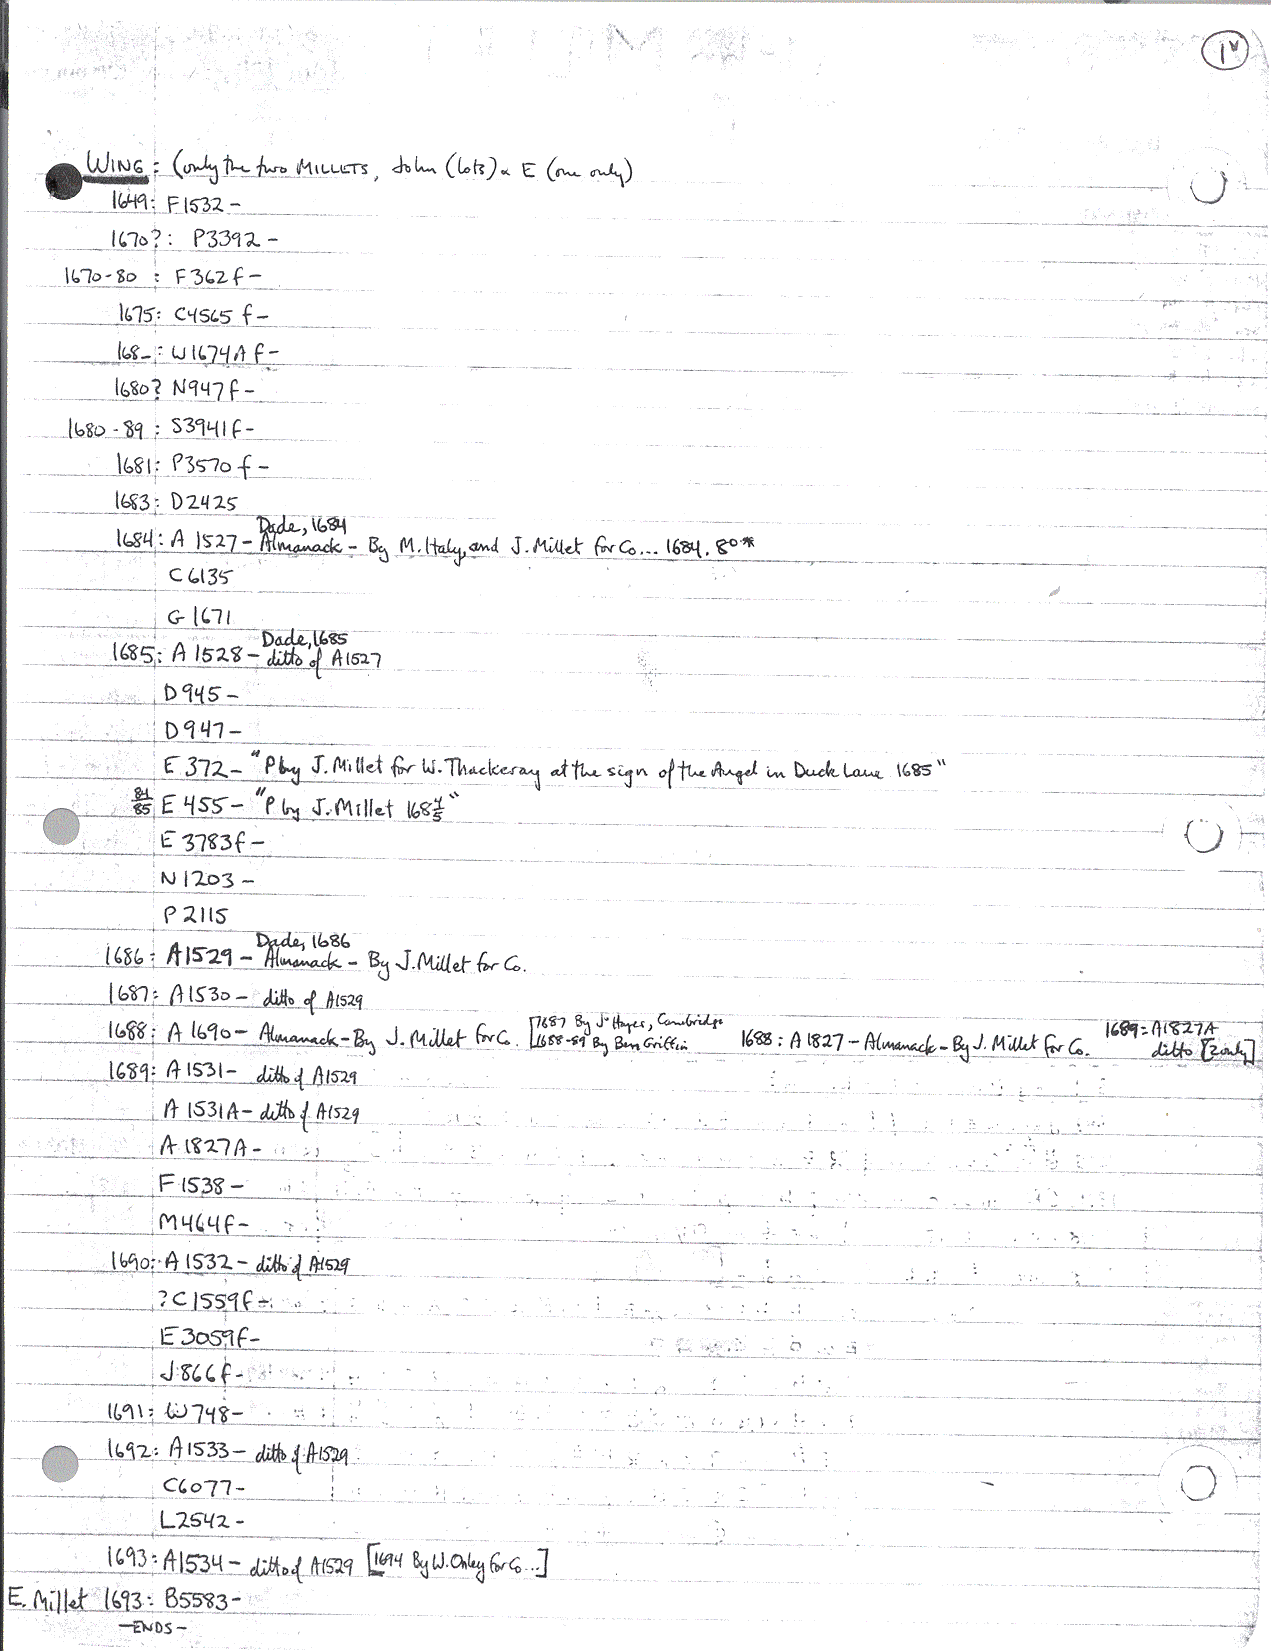 1v
WING: (only the two MILLETS, John (lots) & E (one only)
1649: F1532 -
1670?: P3392 -
1670-80 : F362f -
1675: C4565 f -
168-: W1674A f -
1680? N947f -
1680-89 : S3941f -
1681: P3570f -
1683: D2425
Dade, 1684
1684: A 1527 - Almanack - By M. Italy, and J. Millet for Co... 1684. 8º*
C6135
G1671
Dade, 1685
1685: A 1528 - ditto of A1527
D945 -
D947 -
E 372 - "P by J. Millet for W. Thackeray at the sign of the Angel in Duck Lane 1685"
84/85 E 455 - "P by J. Millet 168 4/5"
E 3783f -
N1203 -
P2115
Dade, 1686
1686: A1529 - Almanack - By J. Millet for Co.
1687: A1530 - ditto of A1529
1688: A 1690 - Almanack - By J. Millet for Co. [1687 By J. Hayes, Cambridge 1688-89 By Ben Griffin 1688: A 1827 - Almanack - By J. Millet for Co. 1689: A1827A ditto [2 only]
1689: A1531 - ditto of A1529
A 1531A - ditto of A1529
A 1827A -
F1538 -
M464f -
1690: A 1532 - ditto of A1529
?C1559f -
E3059f -
J866f -
1691: W748 -
1692: A1533 - ditto of A1529
C6077 -
L2542 -
1693: A1534 - ditto of A1529 [1694 By W. Onley for Co...]
E. Millet 1693: B5583 -
- ENDS -